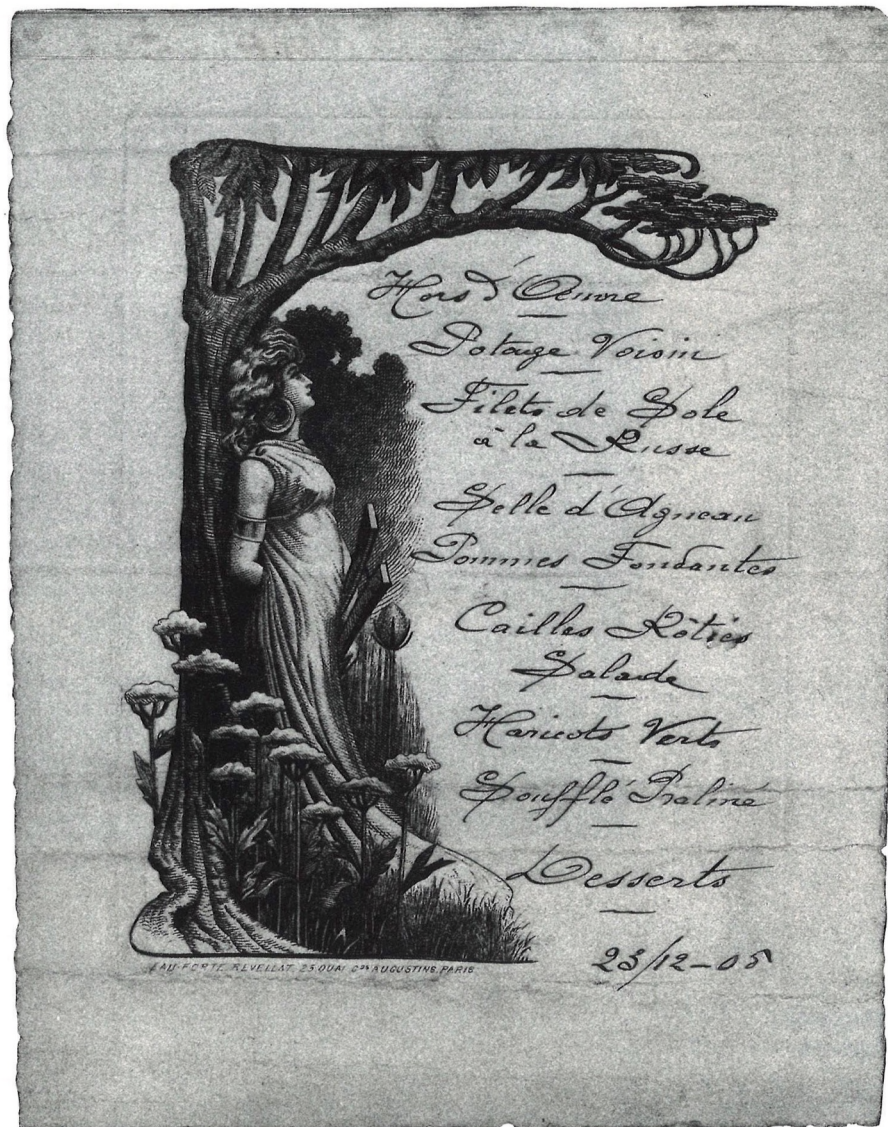 Hors d'Œuvre
Potage Voisin
Filets de Sole
à la Russe
Selle d'Agneau
Pommes Fondantes
Cailles Rôties
Salade
Haricots Verts
Soufflé Praliné
Desserts
23/12-08
EAU-FORTE REVELLAT, 25 QUAI Gds AUGUSTINS, PARIS